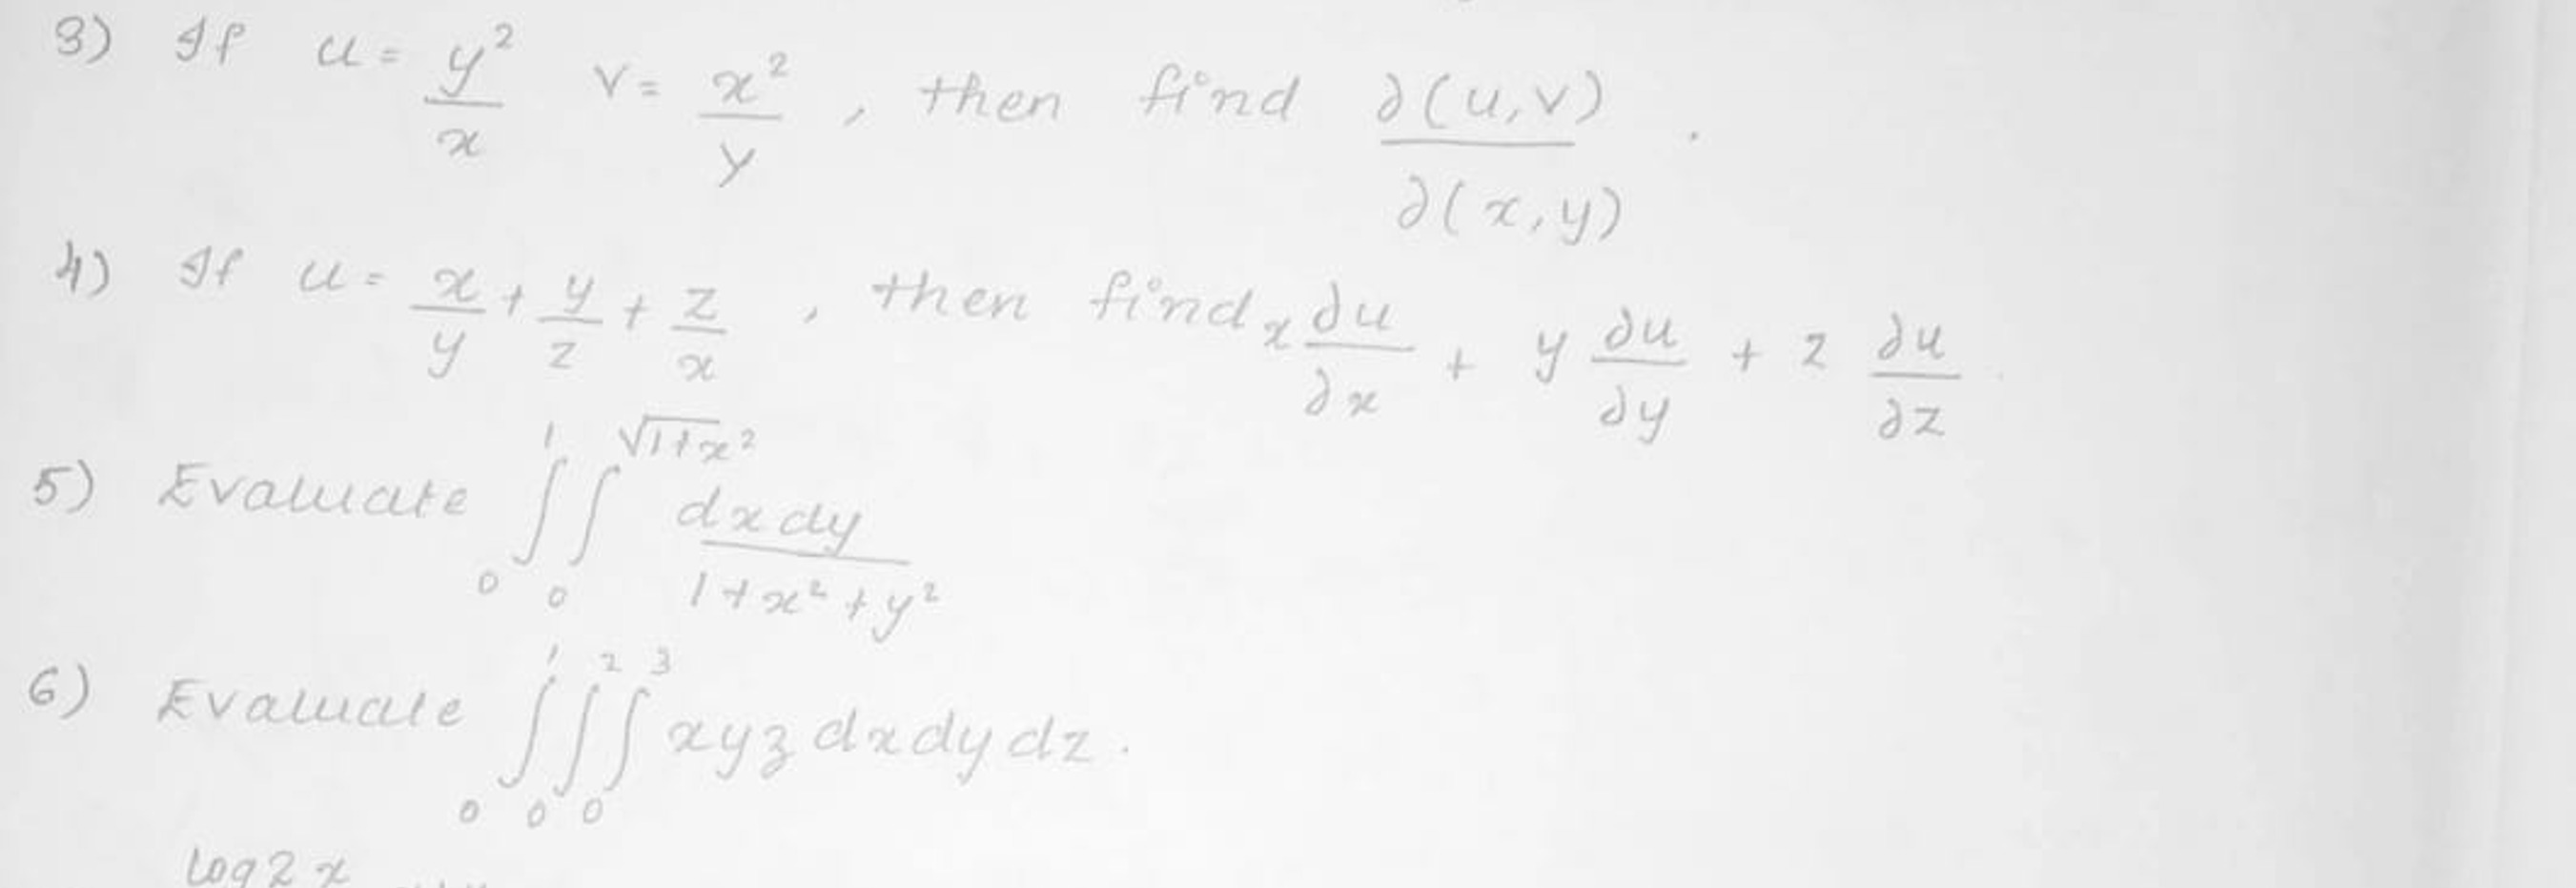 3) If u = y²/x v = x²/y , then find ∂(u,v)/∂(x,y) .
4) If u = x/y + y/z + z/x , then find x ∂u/∂x + y ∂u/∂y + z ∂u/∂z .
5) Evaluate ∫₀¹ ∫₀^√(1+x²) dxdy/(1+x²+y²)
6) Evaluate ∫₀¹ ∫₀² ∫₀³ xyz dxdydz .
log2 x